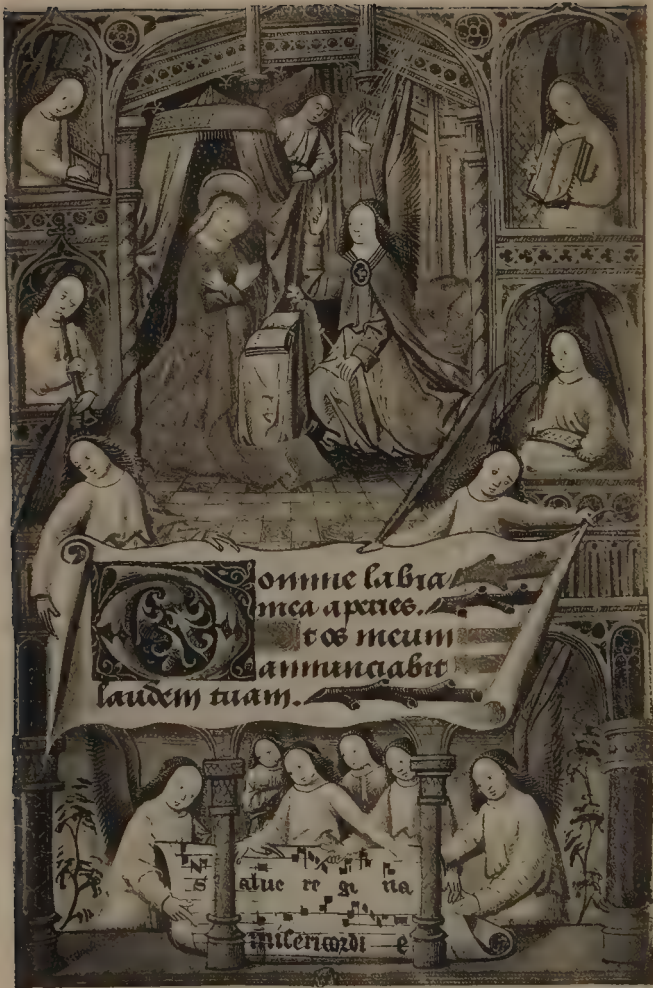 Domine labia
mea aperies.
t os meum
annunciabit
laudem tuam.
Salue re gi na
misericordi e